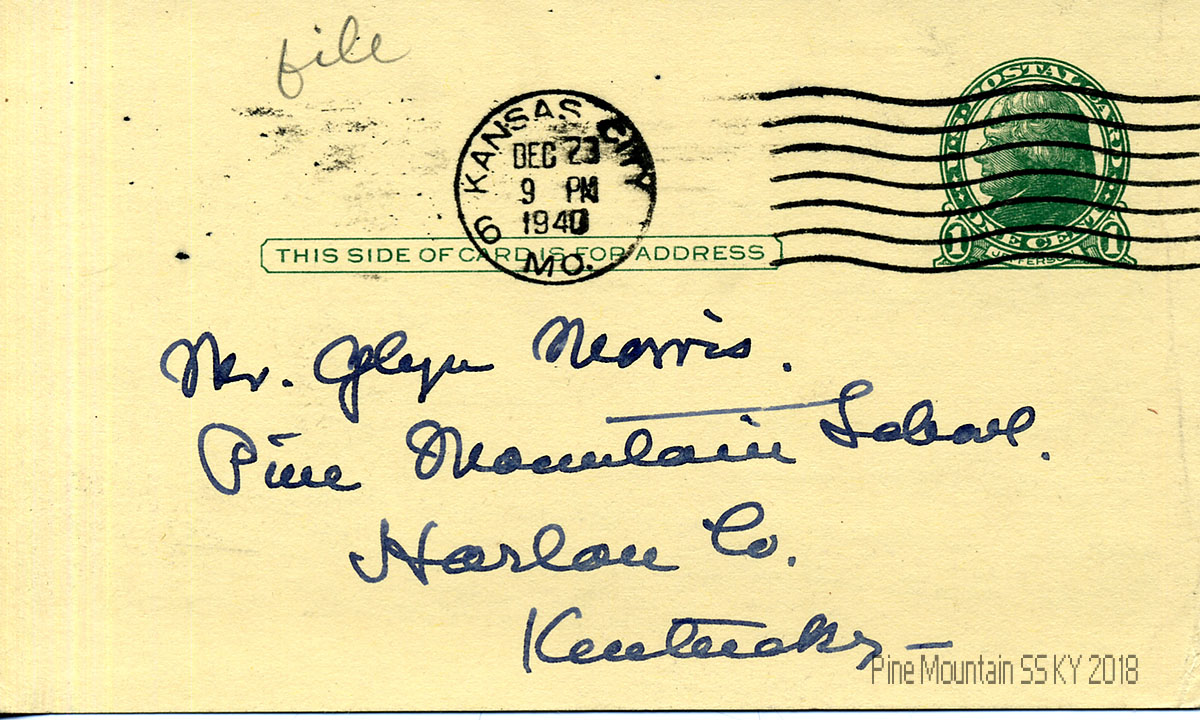 file
KANSAS CITY
DEC 23
9 PM
1940
6
MO.
U.S. POSTAL CARD
1 ONE CENT 1
JEFFERSON
THIS SIDE OF CARD IS FOR ADDRESS
Mr. Glyn Morris.
Pine Mountain School.
Harlan Co.
Kentucky —
Pine Mountain SS KY 2018